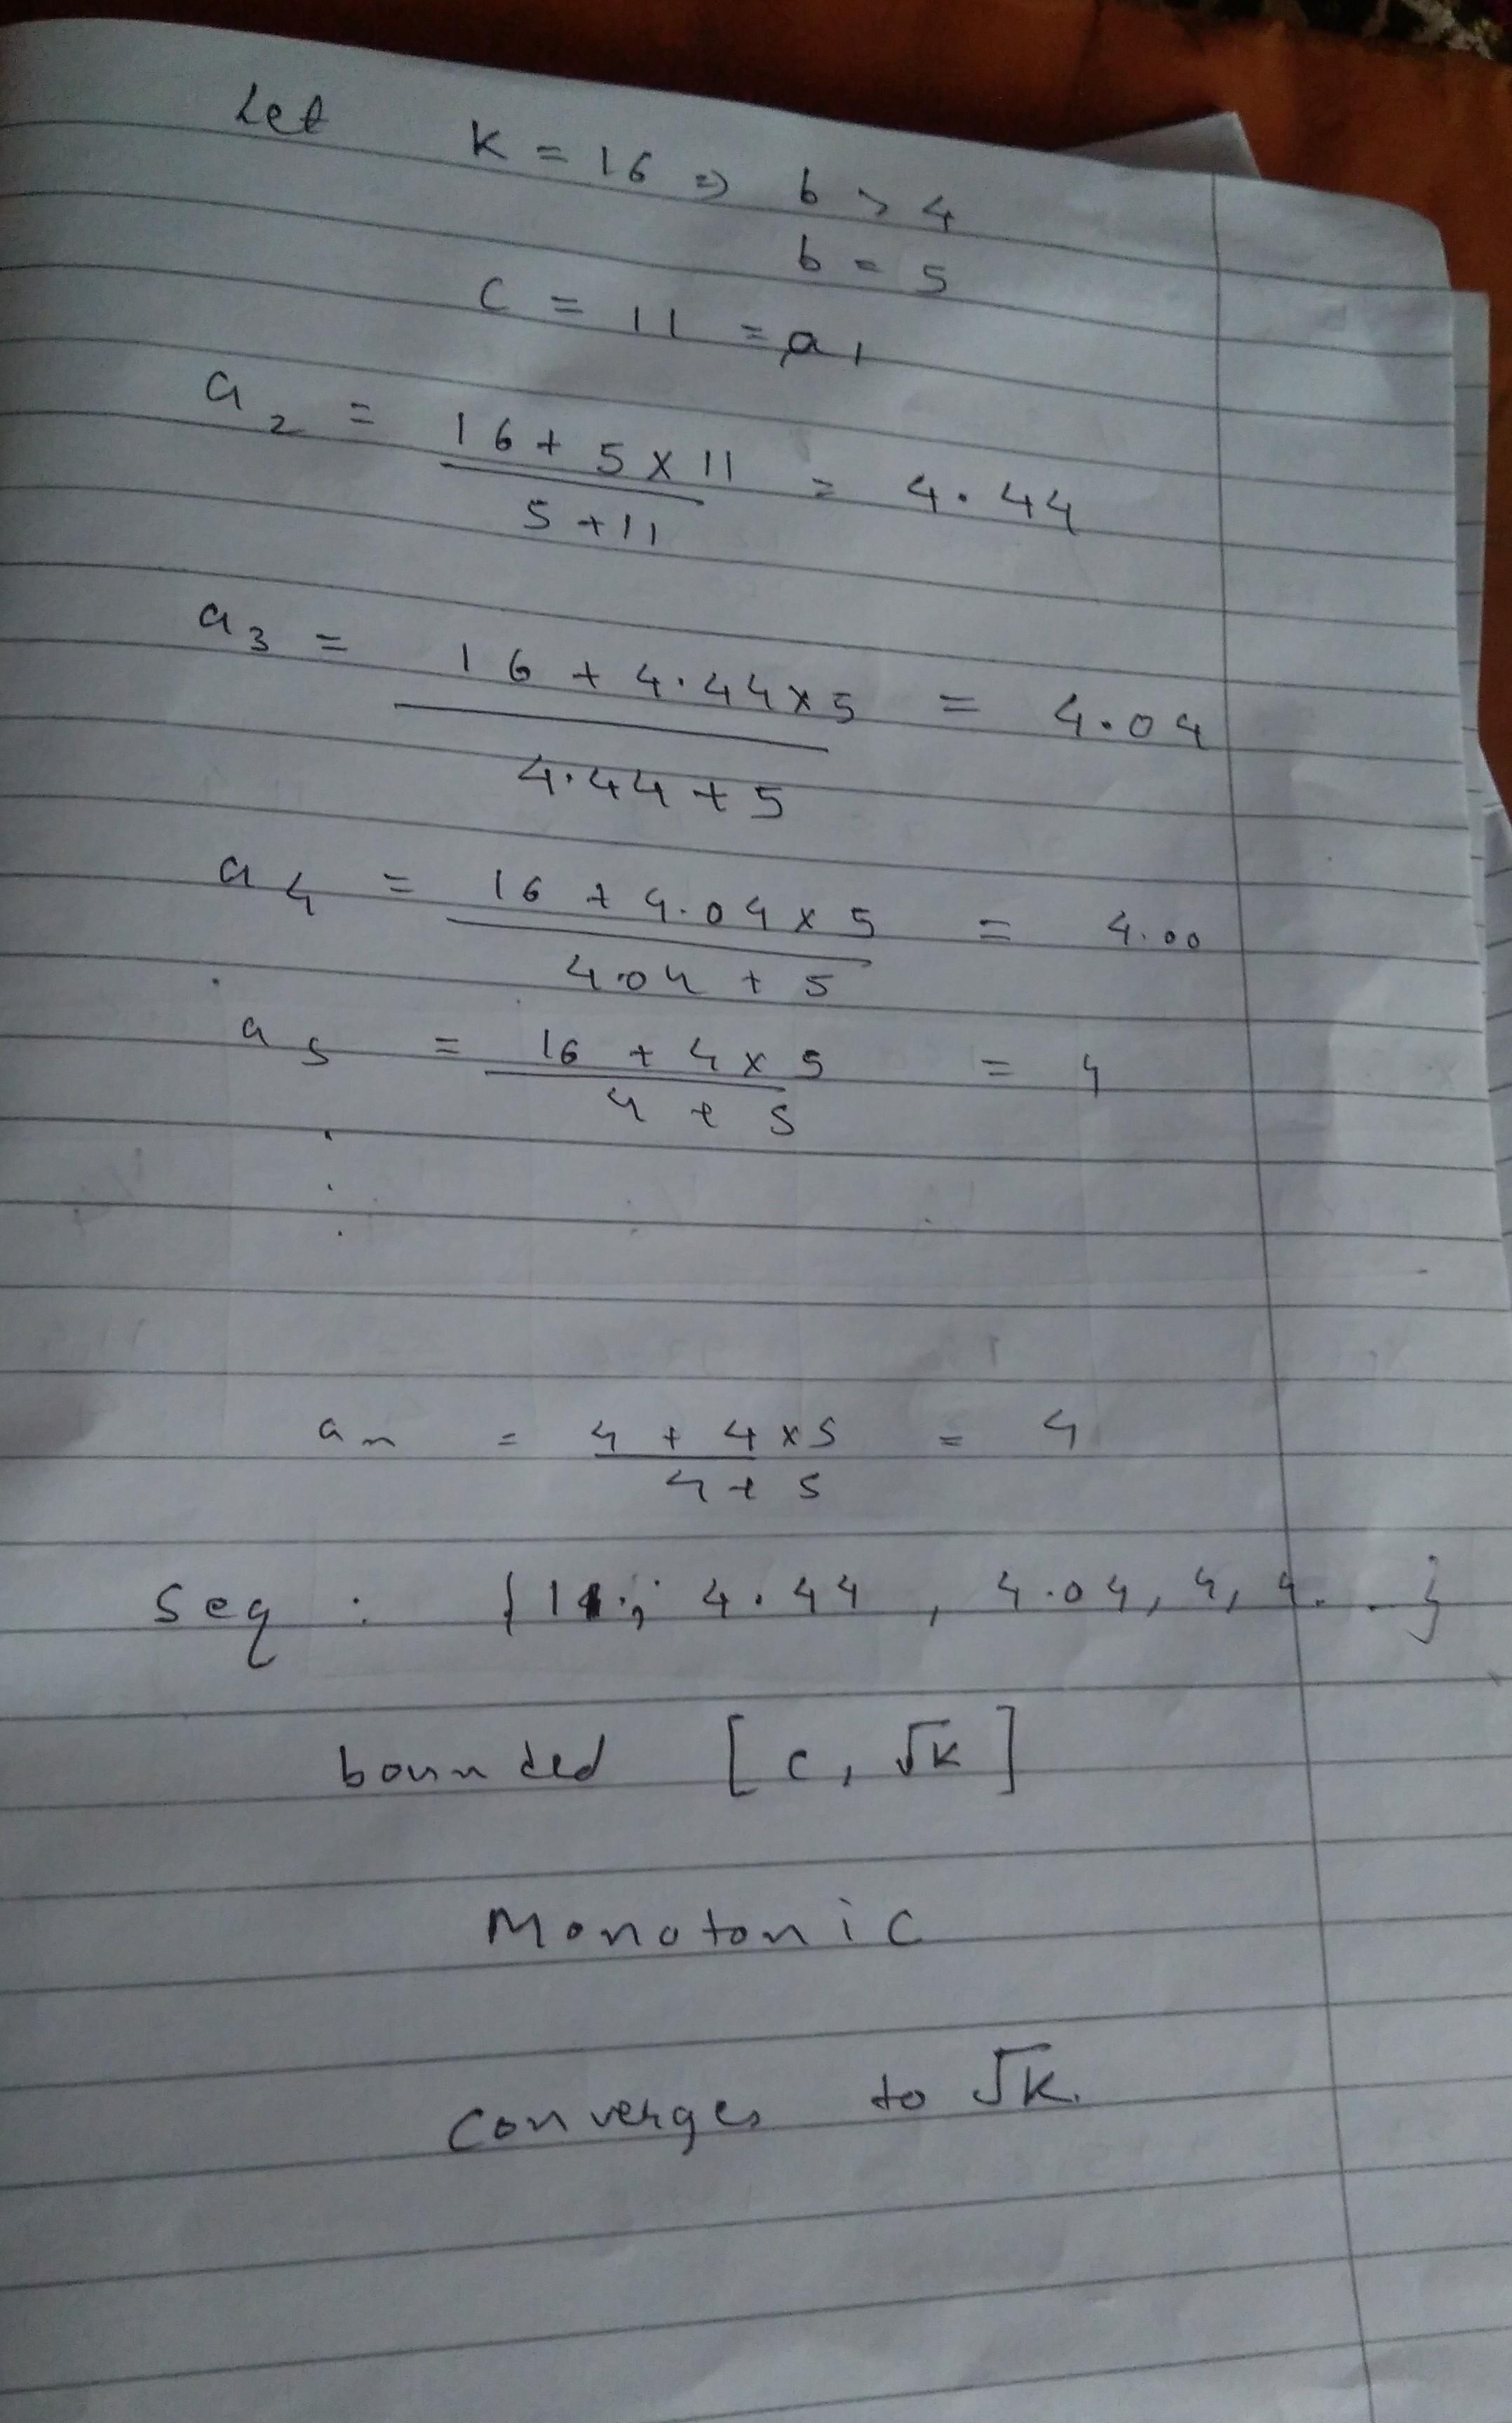 Let K = 16 ⇒ b > 4
b = 5
C = 11 = a1
a2 = 16 + 5 x 11 = 4.44
5 + 11
a3 = 16 + 4.44 x 5 = 4.04
4.44 + 5
a4 = 16 + 4.04 x 5 = 4.00
4.04 + 5
a5 = 16 + 4 x 5 = 4
4 + 5
.
.
.
an = 4 + 4 x 5 = 4
4 + 5
Seq : { 11, 4.44, 4.04, 4, 4...}
bounded [c, √K]
Monotonic
converges to √K.